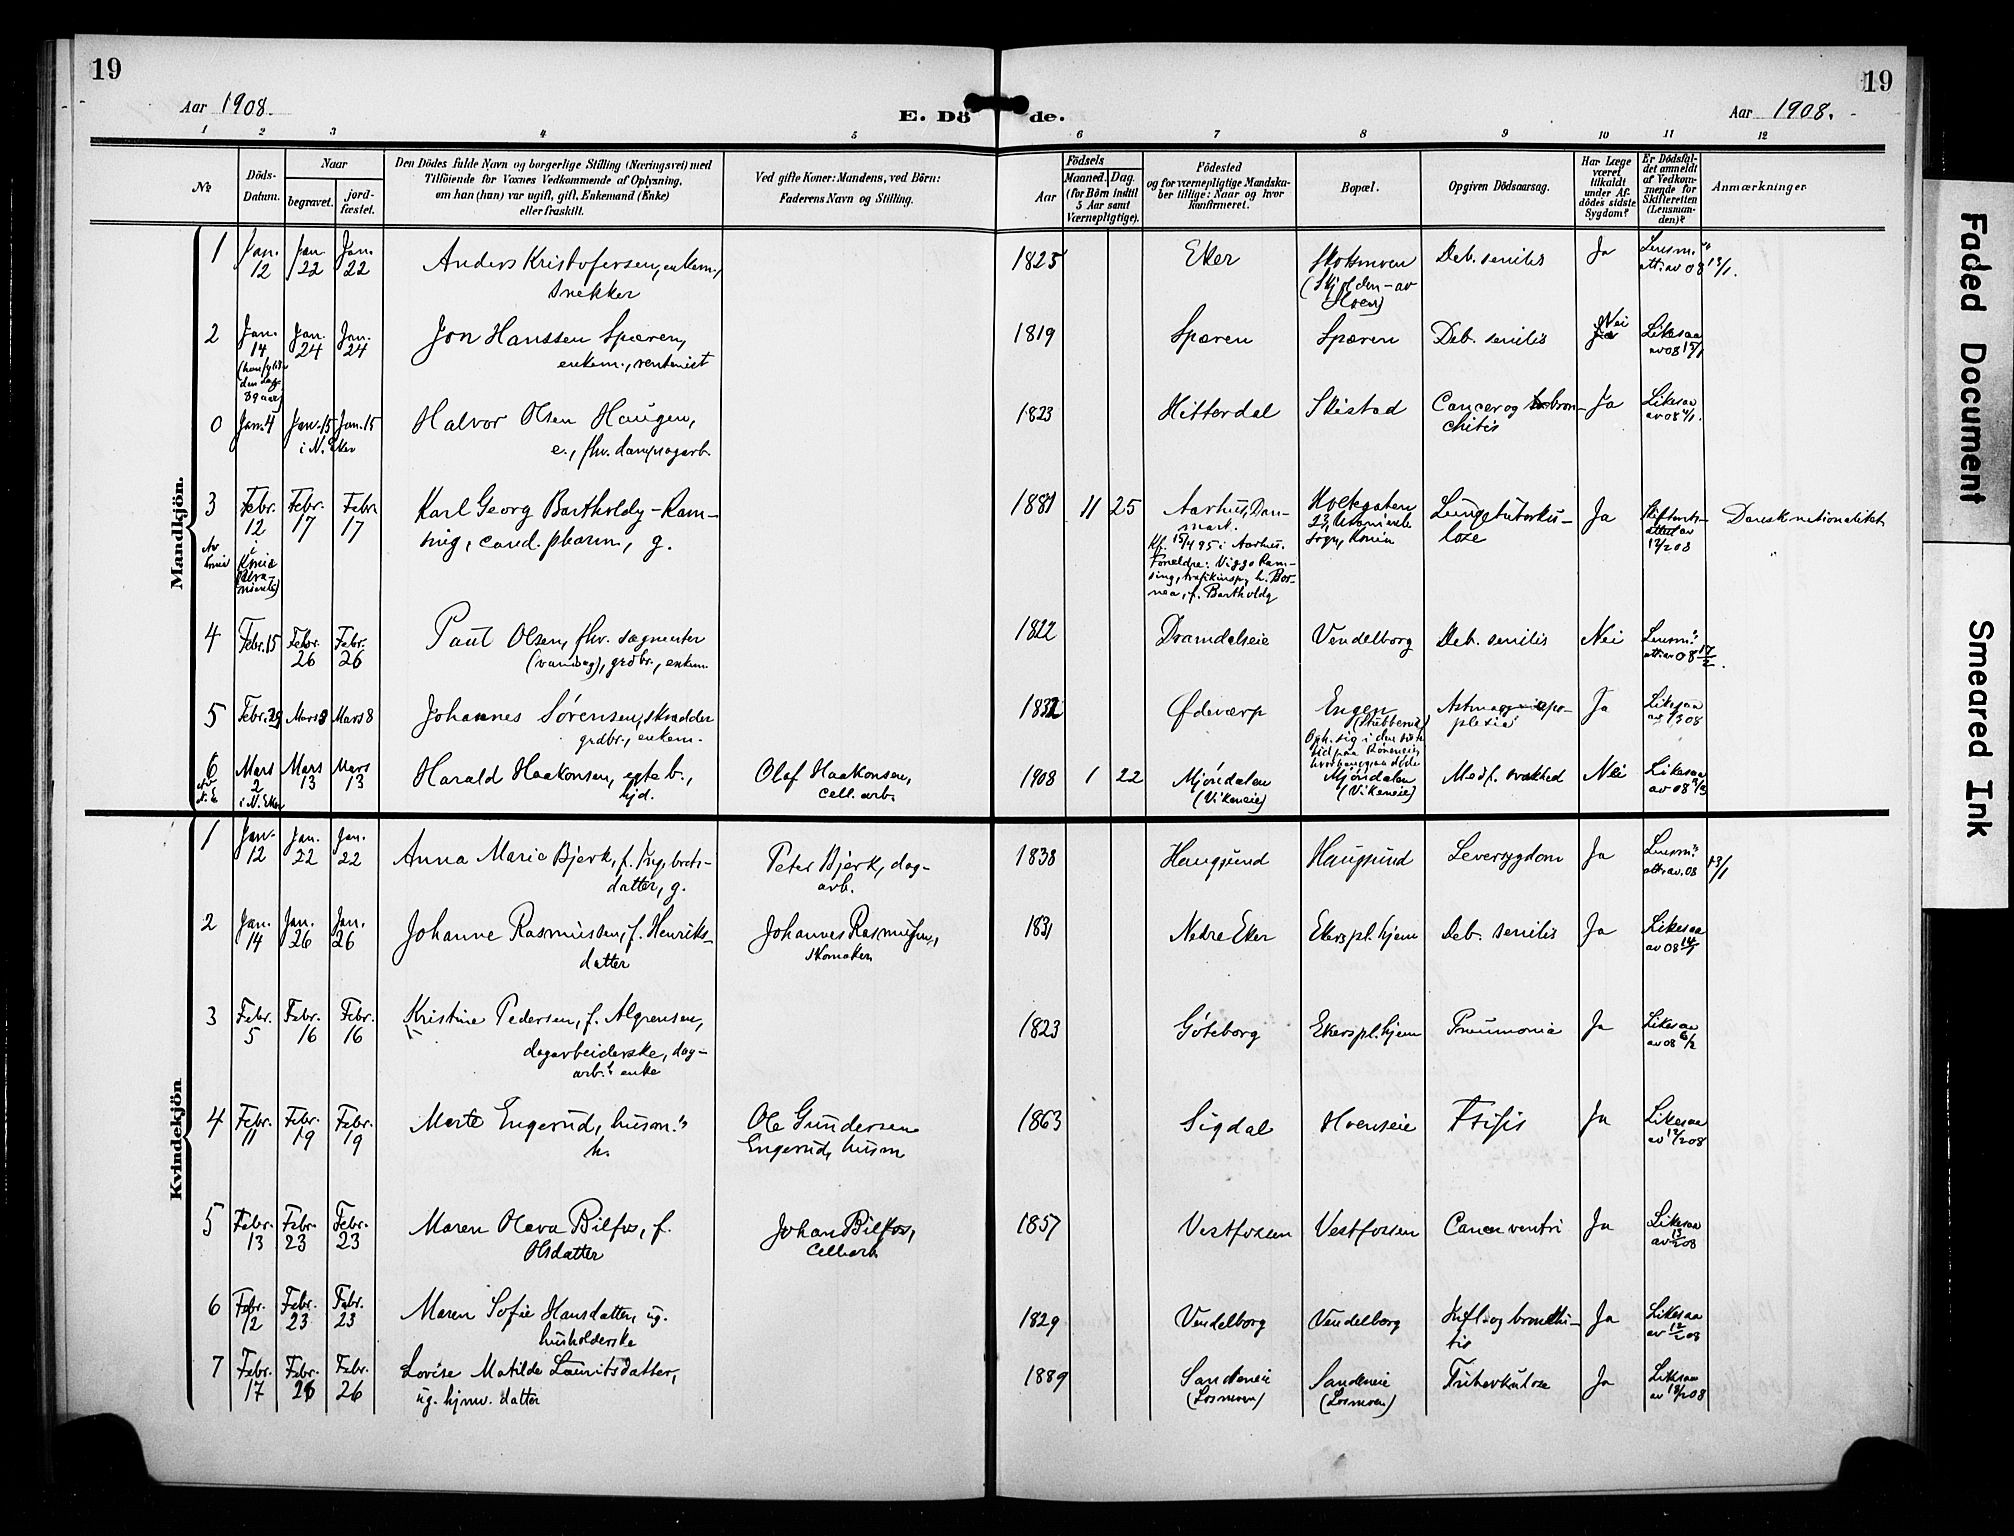 19
19
Aar 1908.
E. Döde.
Aar 1908.
1 2 3 4 5 6 7 8 9 10 11 12
No
Döds-Datum.
Naar
begravet.
jord-fæstet.
Den Dödes fulde Navn og borgerlige Stilling (Næringsvei) med
Tilföiende for Voxnes Vedkommende af Oplysning,
om han (hun) var ugift, gift, Enkemand (Enke)
eller fraskilt.
Ved gifte Koner: Mandens, ved Börn:
Faderens Navn og Stilling.
Födsels
Aar
Maaned. Dag.
(for Börn indtil
5 Aar samt
Værnepligtige).
Födested
og for værnepligtige Mandska-
ber tillige: Naar og hvor
konfirmeret.
Bopæl.
Opgiven Dödsaarsag.
Har Læge
været
tilkaldt
under Af-
dödes sidste
Sygdom?
Er Dödsfal-
det anmeldt
af Vedkom-
mende for
Skifteretten
(Lensman-
den)?
Anmærkninger
Mandkjön.
1 Jan. 12 Jan. 22 Jan. 22 Anders Kristofersen, enkem., snekker 1825 Eker Skotsmoen (Skjolden - av Hoen) Deb. senilis Ja Lensm.s att. av 08 13/1.
2 Jan. 14 Jan. 24 Jan. 24 Jon Hanssen Spæren, enkem., rentenist 1819 Spæren Spæren Deb. senilis Nei Likesaa av 08 15/1
0 Jan. 4 Jan. 15 Jan. 15 i N. Eker Halvor Olsen Haugen, e., fhv. dampsagarb. 1823 Hitterdal Skistad Cancer og bronchitis Ja Likesaa av 08
3 Febr. 12 Febr. 17 Febr. 17 Karl Georg Bartholdy-Ramsing, cand. pharm., g. 1881 11 25 Aarhus, Danmark. Kf. 15/4 95 i Aarhus. Forældre: Viggo Ramsing, trafikinsp., h. f. Bartholdy Lungetuberkulose Ja av 12/2 08 Dansk nationalitet
4 Febr. 15 Febr. 26 Febr. 26 Paul Olsen, fhv. sagmester grdbr., enkem. 1822 Dramdalseie Vendelborg Deb. senilis Nei Lensm.s att. av 08 17/2.
5 Febr. 29 Mars 8 Mars 8 Johannes Sörensen, skrædder grdbr., enkem. 1832 Ødeværp Engen (Stubberud) Astma apoplexia Ja Likesaa
6 Mars 2 i N. Eker Mars 13 Mars 13 Harald Haakonsen, egte b., hjd. Olaf Haakonsen, cell. arb. 1908 1 22 Mjöndalen (Vikeneie) Mjöndalen (Vikeneie) Medf. svakhed Nei Likesaa av 08
Kvindekjön.
1 Jan. 12 Jan. 22 Jan. 22 Anna Marie Bjerk, f. Ingebretsdatter, g. Peter Bjerk, dagarb. 1838 Haugsund Haugsund Leversygdom Ja Lensm.s att. av. 08 13/1
2 Jan. 14 Jan. 26 Jan. 26 Johanne Rasmussen, f. Henriksdatter Johannes Rasmussen, skomaker 1831 Nedre Eker Ekers pl. hjem Deb. senilis Ja Likesaa av 08 14/1
3 Febr. 5 Febr. 16 Febr. 16 Kristine Pedersen, f. Algrensen, dagarbeiderske, dagarb.s enke 1823 Göteborg Ekers pl. hjem Pneumonia Ja Likesaa av 08 6/2
4 Febr. 11 Febr. 19 Febr. 19 Marte Engerud, husm.s h. Ole Gundersen Engerud, husm 1863 Sigdal Hoenseie Ftisis Ja Likesaa av 08
5 Febr. 13 Febr. 23 Febr. 23 Maren Olava Bilfos, f. Olsdatter Johan Bilfos, Cellarb. 1857 Vestfossen Vestfossen Cancer ventri Ja Likesaa av 13/2 08
6 Febr. 12 Febr. 23 Febr. 23 Maren Sofie Hansdatter, ug. husholderske 1829 Vendelborg Vendelborg og bronchitis Ja Likesaa av 12/2 08
7 Febr. 17 Febr. 26 Febr. 26 Lovise Matilde Lauritsdatter, ug. hjmv. datter 1889 Sandeneie (Losmoen) Sandeneie (Losmoen) Tuberkulose Ja Likesaa av 18/2 08
Faded Document
Smeared Ink